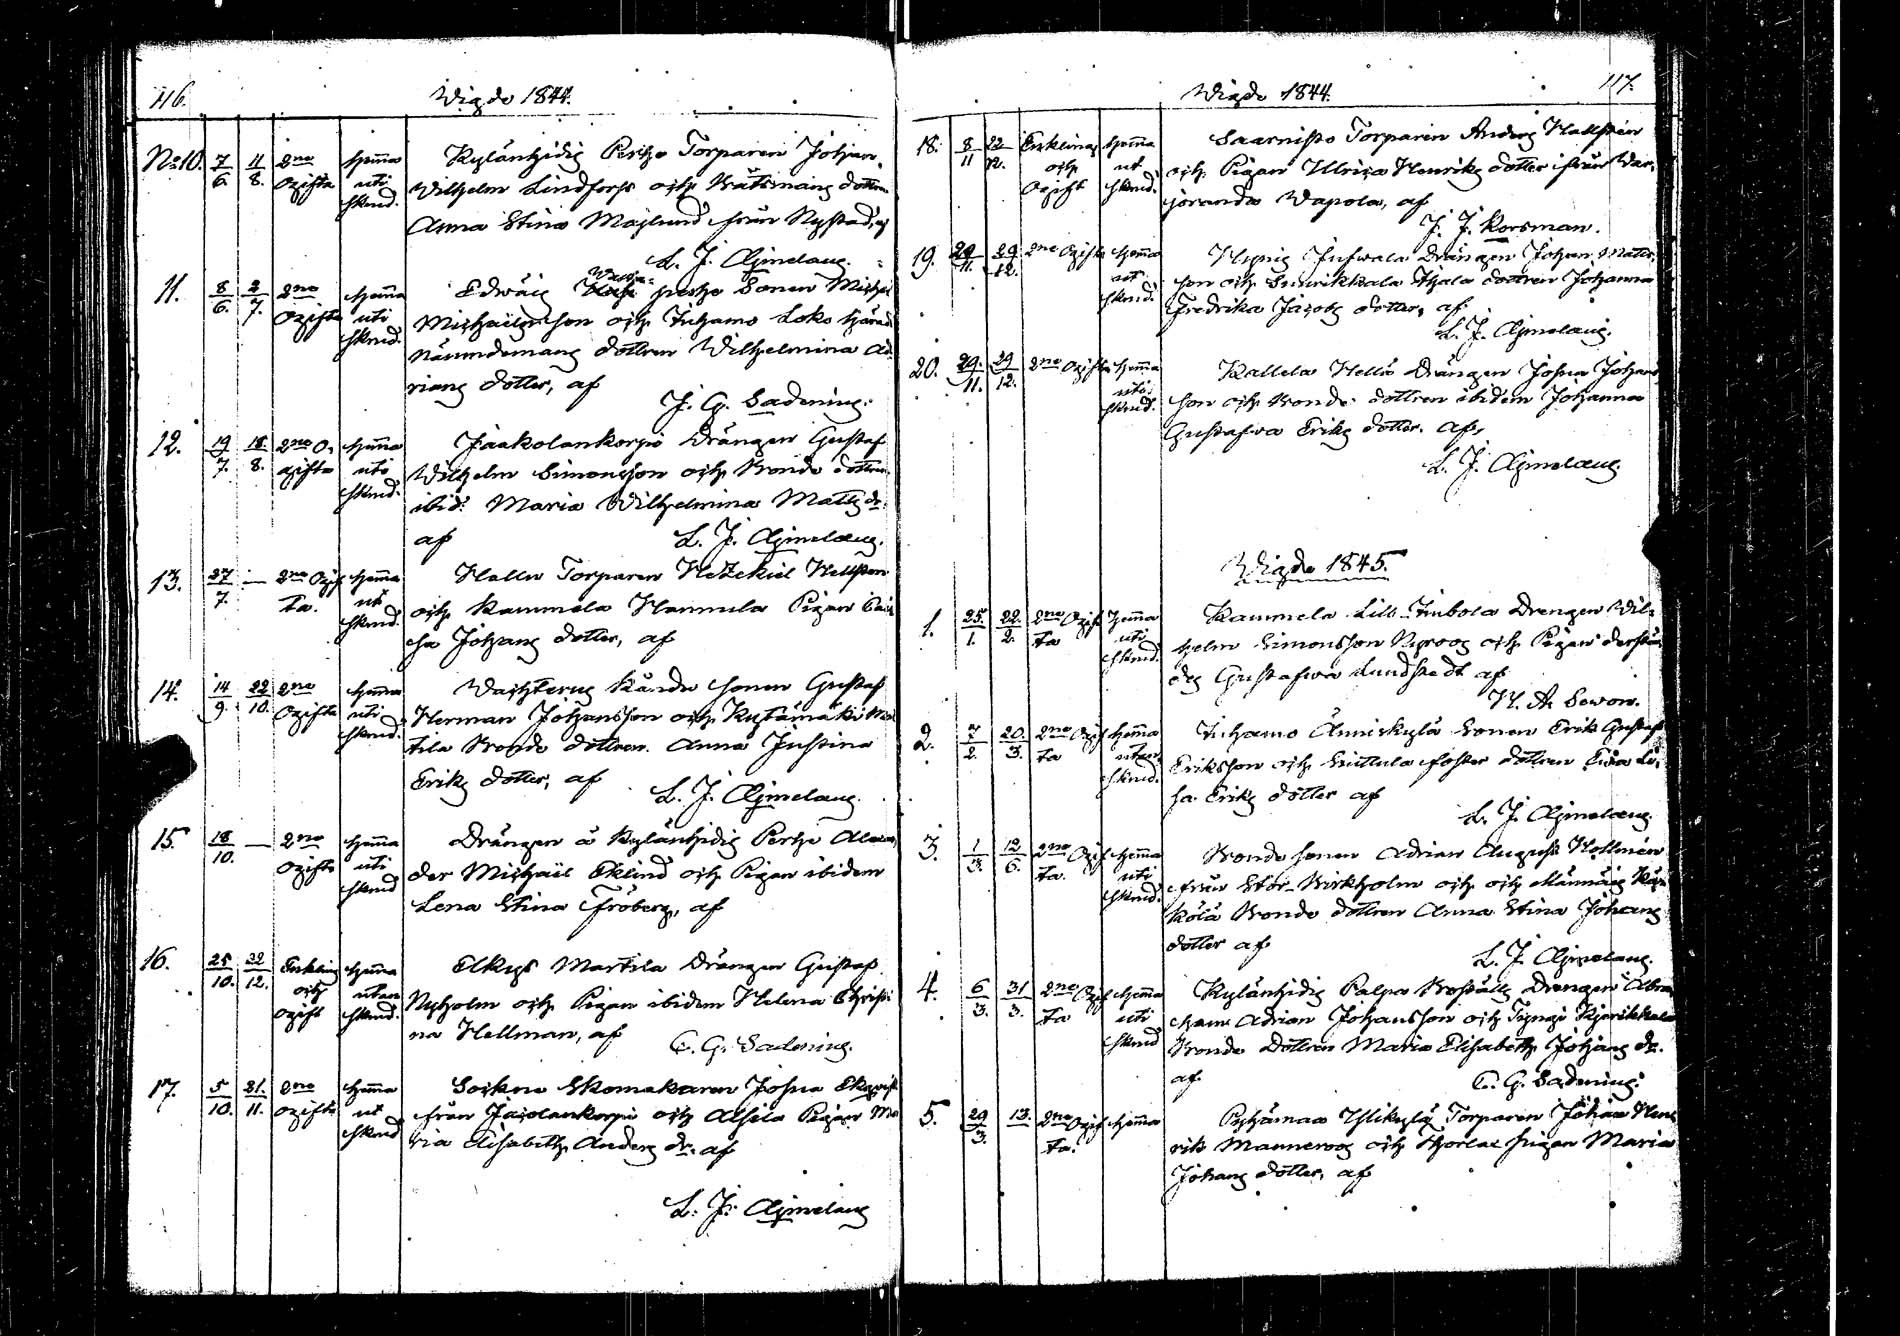 116.
Wigde 1844.
No 10. 7/6. 11/8. 2ne Ogifta Hemma uti Sknd. Kylänhidis Pertze Torparen Johan
Wilhelm Lindfors och Båtsmans dottren
Anna Stina Majlund från Nystad, af
L. J. Ajmelaeus.
11. 8/6. 2/7. 2ne Ogifta Hemma uti Sknd. Edwäis sonen Michel
Michaëlsson och Juhamo Loko Härads
nämndemans dottren Wilhelmina Ad-
rians dotter, af
J. G. Sadenius.
12. 19/7. 18/8. 2ne O-gifta Hemma uti Sknd. Jaakolankorpi Drängen Gustaf
Wilhelm Simonsson och Bonde dottren
ibid: Maria Wilhelmina Matts dr.
af L. J. Ajmelaeus.
13. 27/7. — 2ne Ogifta. Hemma ut Sknd. Hallu Torparen Hezekiel Hellsten
och Kammela Hannula Pigan Cai-
sa Johans dotter, af
14. 14/9. 22/10. 2ne Ogifta Hemma uti Sknd. Wachterus Bonde sonen Gustaf
Herman Johansson och Kytämäki Mar-
tila Bonde dottren Anna Justina
Eriks dotter, af L. J. Ajmelaeus.
15. 18/10. — 2ne Ogifta Hemma uti Sknd Drängen å Kylänhidis Pertze Alexan-
der Michaël Eklind och Pigan ibidem
Lena Stina Fröberg, af
16. 25/10. 12. Enkling och Ogift Hemma utan Sknd. Elkys Martila Drängen Gustaf
Nyholm och Pigan ibidem Helena Christi-
na Hellman, af C. G. Sadenius.
17. 5/10. 21/11. 2ne Ogifta Hemma ut Sknd Sockne Skomakaren Josua Ekqvist
från Jacolankorpi och Alhila Pigan Ma-
ria Elisabeth Anders dr. af
L. J. Ajmelaeus
Wigde 1844.
117.
18. 8/11 22/12. Enkling och Ogift Hemma ut Sknd. Saarnisto Torparen Anders Hallstén
och Pigan Ulrica Henriks dotter från War-
jaranda Wapola, af
J. J. Korsman.
19. 29/11. 29/12. 2ne Ogifta Hemma ut Sknd. Drängen Johan Matts-
son och dottren Johanna
Fredrika Jacobs dotter, af
L. J. Ajmelaeus.
20. 29./11. 29/12. 2ne Ogifta Hemma uti Sknd. Kallela Hellä Drängen Josua Johans-
son och Bonde dottren ibidem Johanna
Gustafwa Eriks dotter. af,
L. J. Ajmelaeus.
Wigde 1845.
1. 25./1. 22./2. 2ne Ogifta Hemma uti Sknd. Kammela Lill-Jinbola Drengen Wil-
helm Simonsson Nyroos och Pigan derstä-
des Gustafwa Lundstedt af
H. A. Sewon.
2. 7/2. 20./3. 2ne Ogifta Hemma utan Sknd. Juhamo Änniskylä Sonen Erik Gustaf
Eriksson och foster dottren Ewa Li-
sa Eriks dotter af
L. J. Ajmelaeus.
3. 1/3. 12/6. 2ne Ogifta. Hemma uti Sknd. Bonde sonen Adrian August Hollmén
från Stor-Birkholm och och Männäis
Bonde dottren Anna Stina Johans
dotter af.
L. J. Ajmelaeus.
4. 6/3. 31/3. 2ne Ogifta Hemma uti Sknd Kylänhidis Palpa Drengen Abra-
ham Adrian Johansson och Kjorikkala
Bonde Dottren Maria Elisabeth Johans dr.
af. C. G. Sadenius.
5. 29/3. 13. 2ne Ogifta. Hemma Pyhämaa Ylikylä Torparen Johan Hen-
rik Manneroos och pigan Maria
Johans dotter, af